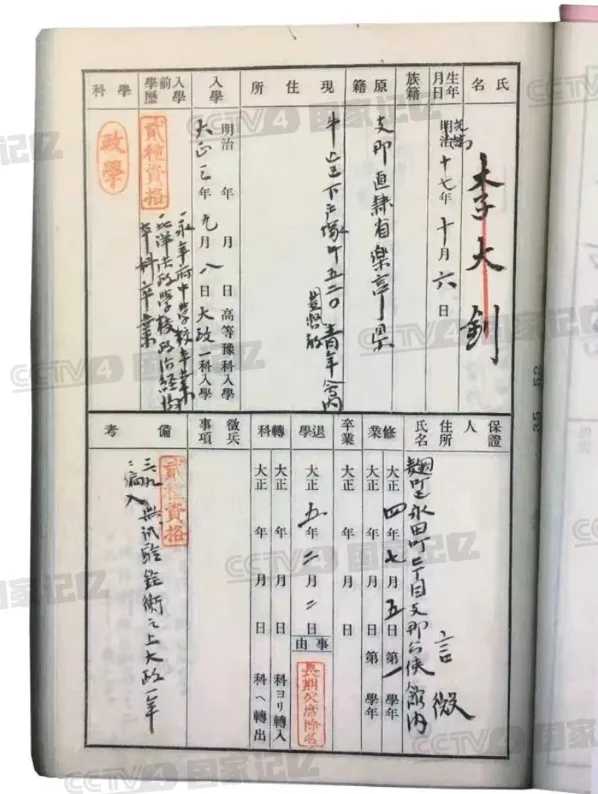 氏名
李大釗
生年月日
光緒
明治十七年十月六日
族籍
原籍
支那直隷省楽亭県
現住所
牛込区下戸塚町五二〇青年会内
入學
明治 年 月 日高等豫科入學
大正三年九月八日大政一科入學
入學前學歷
貳種資格
永年府中學校卒業
北洋法政學校政治經濟
本科卒業
學科
政學
保證人
住所
氏名
麹町区永田町二丁目支那公使館内
言微
修業
大正四年七月五日第一學年
大正 年 月 日第 學年
卒業
大正 年 月 日
退學
大正五年二月二日
事由
長期欠席除名
轉科
大正 年 月 日 科ヨリ轉入
大正 年 月 日 科ヘ轉出
徵兵事項
備考
貳種資格
三、九、無試驗銓衡之上大政一年
ニ編入
CCTV4 国家记忆